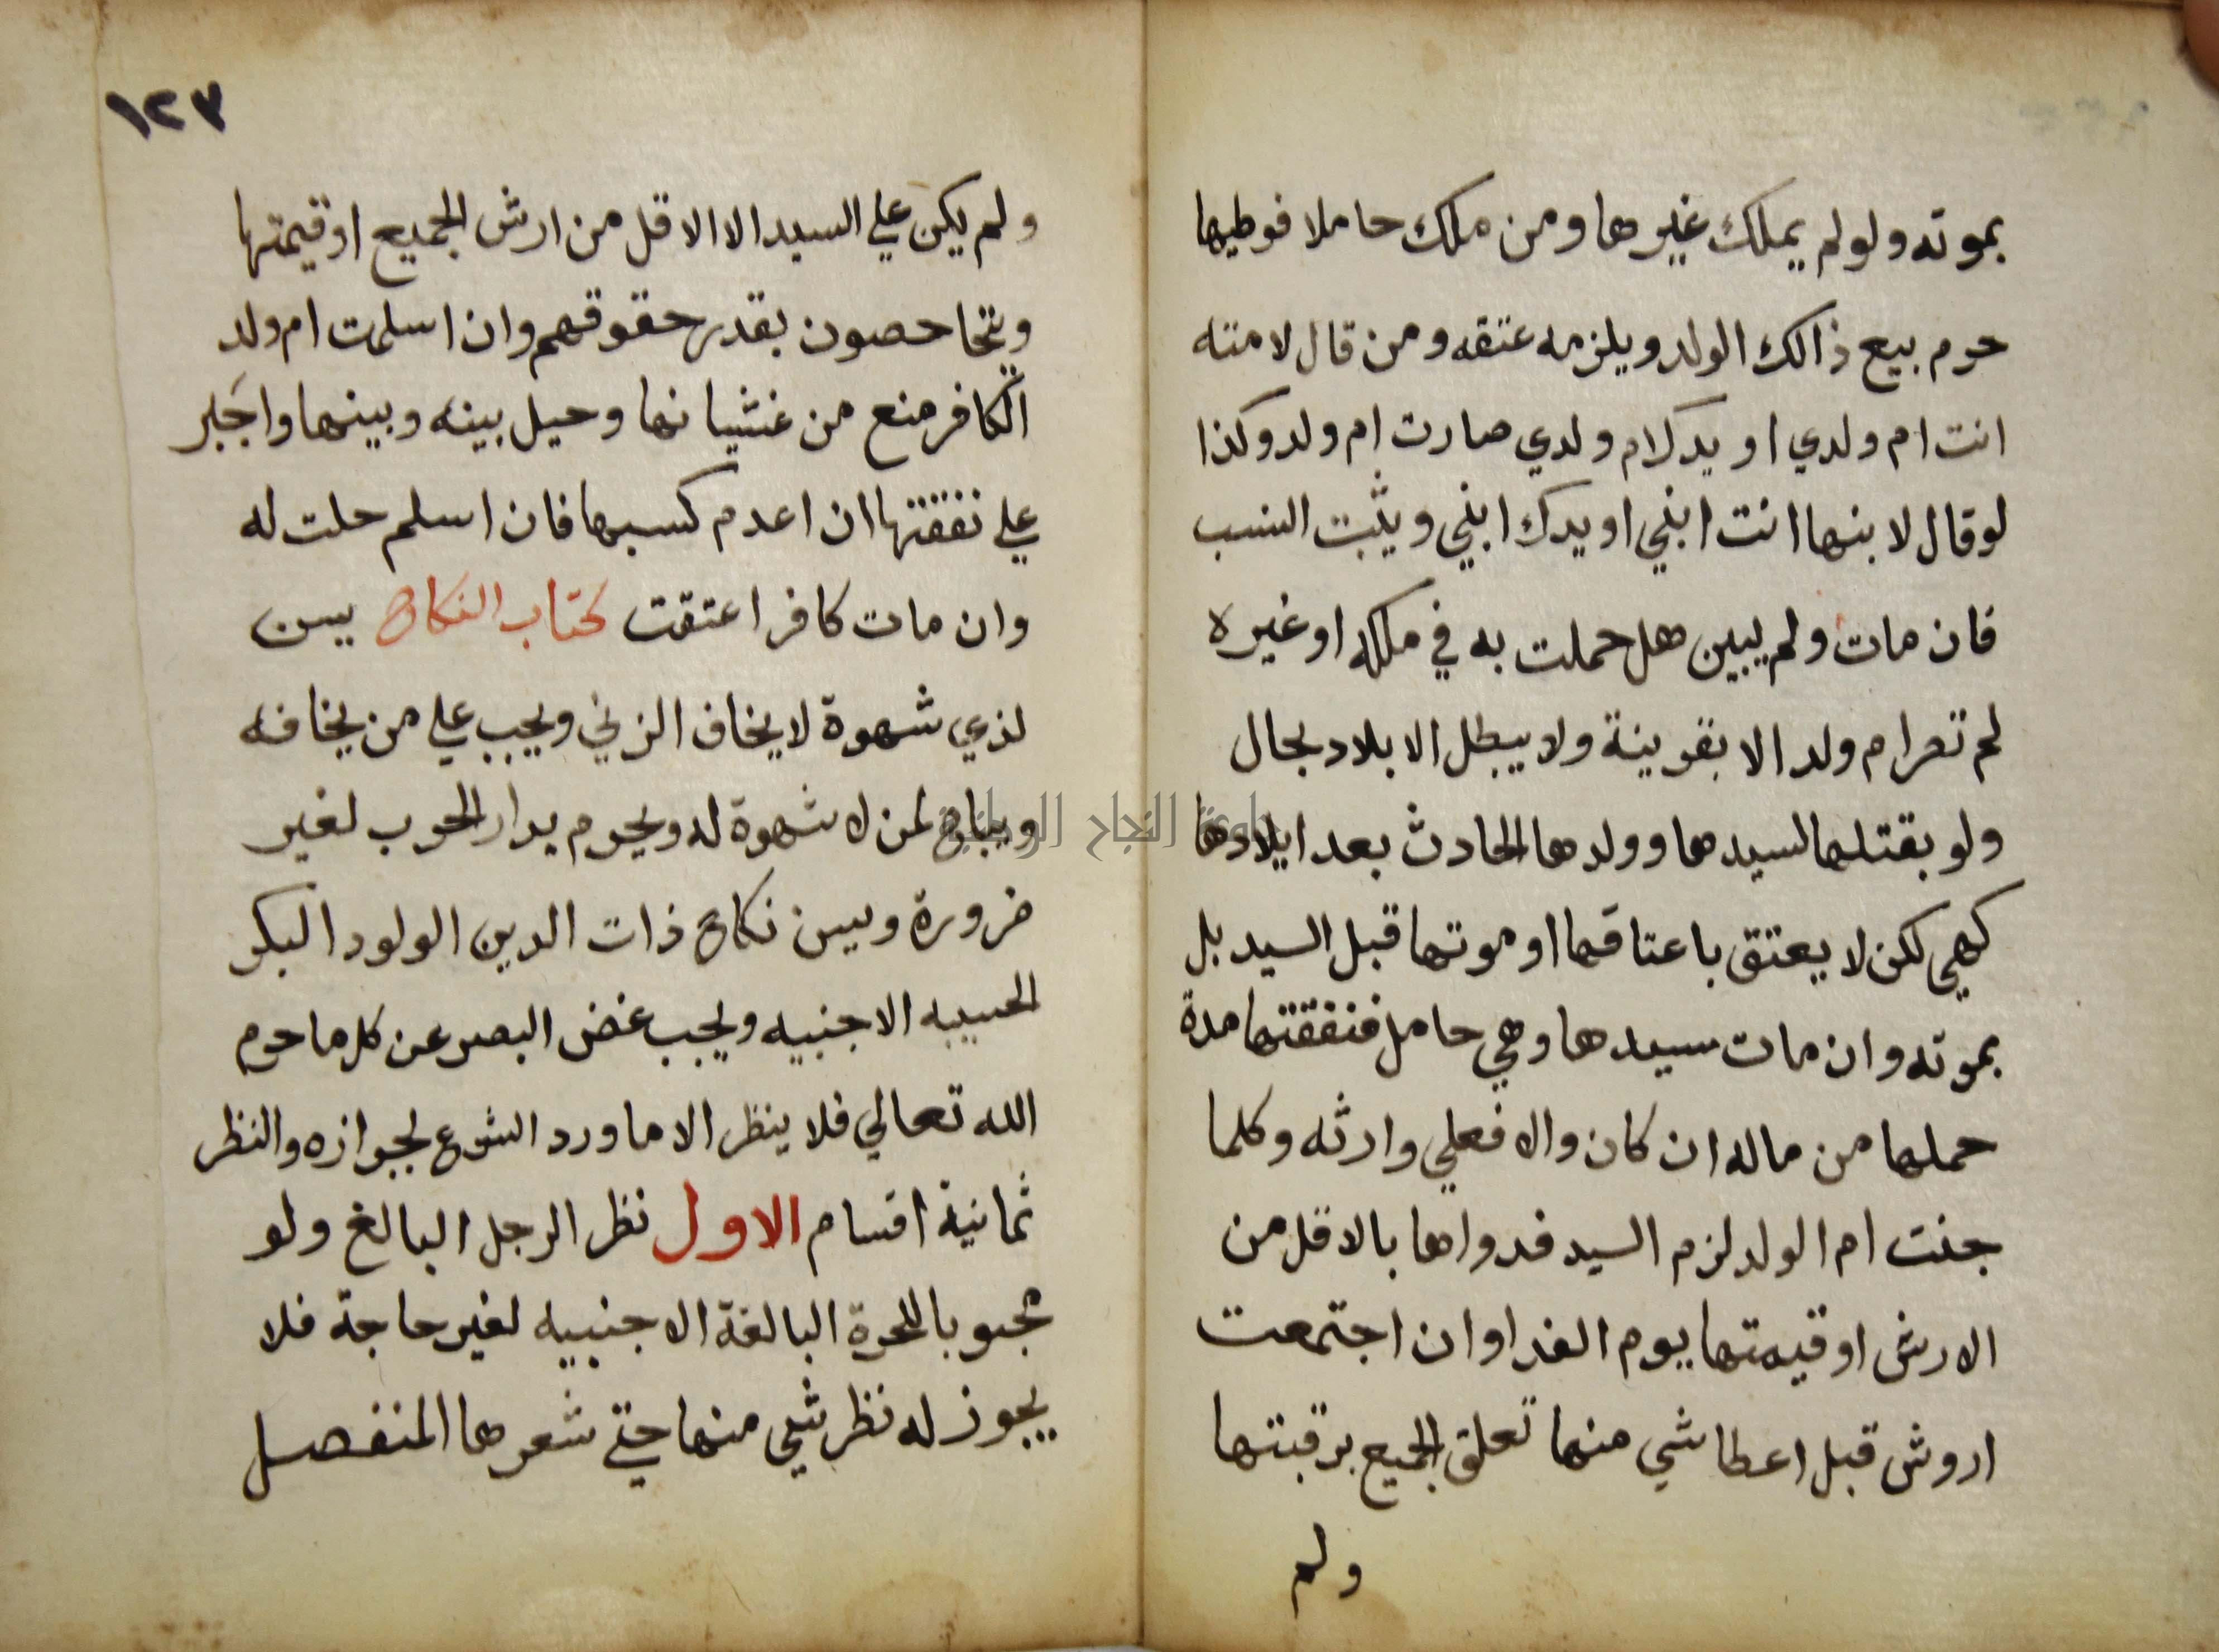 بموته ولو لم يملك غيرها ومن ملك حاملا فوطيها
حرم بيع ذالك الولد ويلزمه عتقه ومن قال لامته
انت ام ولدي او يدك ام ولدي صارت ام ولد وكذا
لو قال لابنها انت ابني او يدك ابني ويثبت النسب
فان مات ولم يبين هل حملت به في ملكه او غيره
لم تصر ام ولد الا بقرينة ولا يبطل الايلاد بحال
ولو بقتلها لسيدها وولدها الحادث بعد ايلادها
كهي لكن لا يعتق باعتاقها او موتها قبل السيد بل
بموته وان مات سيدها وهي حامل فنفقتها مدة
حملها من ماله ان كان والا فعلي وارثه وكلما
جنت ام الولد لزم السيد فدواها بالاقل من
الارش او قيمتها يوم الفدا وان اجتمعت
اروش قبل اعطا شي منها تعلق الجميع برقبتها
ولم
١٢٣
ولم يكن علي السيد الا الاقل من ارش الجميع او قيمتها
ويتحاصون بقدر حقوقهم وان اسلمت ام ولد
الكافر منع من غشيانها وحيل بينه وبينها واجبر
علي نفقتها ان اعدم كسبها فان اسلم حلت له
وان مات كافرا عتقت كتاب النكاح يسن
لذي شهوة لا يخاف الزني ويجب علي من يخافه
ويباح لمن لا شهوة له ويحرم بدار الحرب لغير
ضرورة ويسن نكاح ذات الدين الولود البكر
الحسيبه الاجنبيه ويجب غض البصر عن كل ما حرم
الله تعالي فلا ينظر الا ما ورد الشرع لجوازه والنظر
ثمانية اقسام الاول نظر الرجل البالغ ولو
مجبوبا للحرة البالغة الاجنبيه لغير حاجة فلا
يجوز له نظر شي منها حتي شعرها المنفصل